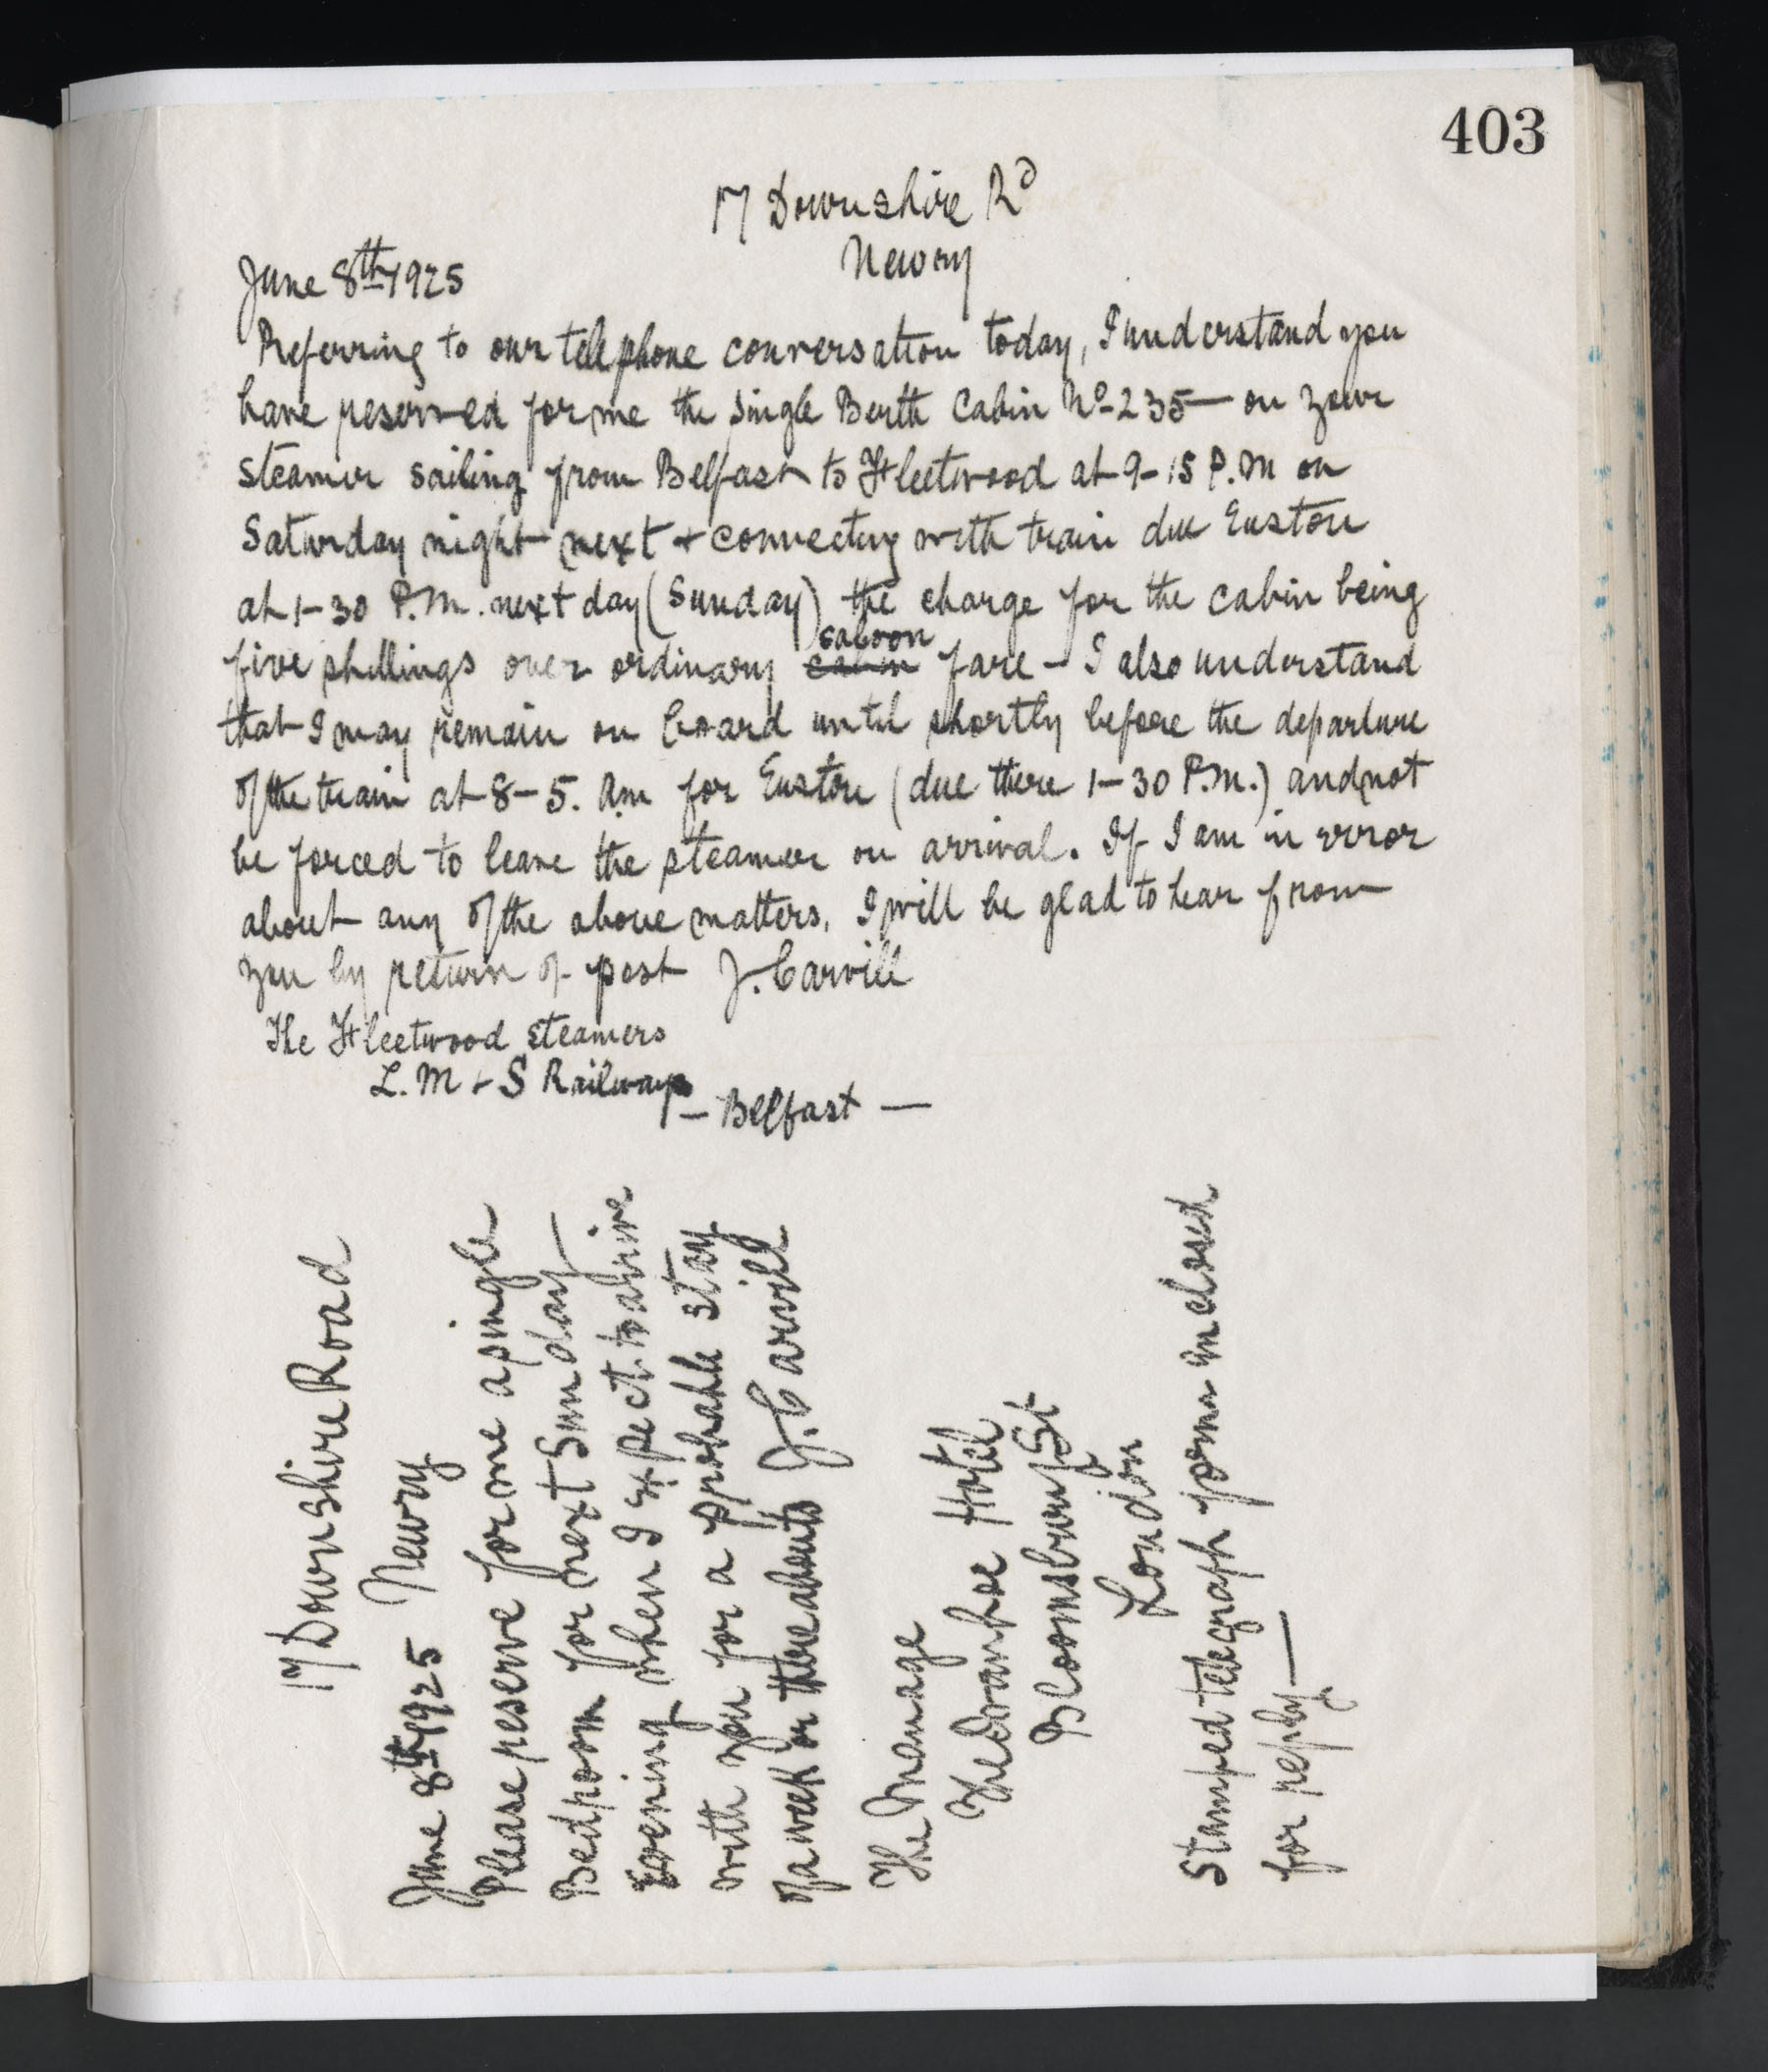 403
17 Downshire Rd
Newry
June 8th 1925
Referring to our telephone conversation today, I understand you
have reserved for me the single Berth Cabin No 235 — on your
steamer sailing from Belfast to Fleetwood at 9-15 P.M on
Saturday night next + connecting with train due Euston
at 1-30 P.M. next day (Sunday) the charge for the cabin being
five shillings over ordinary cabin saloon fare - I also understand
that I may remain on board until shortly before the departure
of the train at 8-5. am for Euston (due there 1-30 P.M.) and not
be forced to leave the steamer on arrival. If I am in error
about any of the above matters, I will be glad to hear from
you by return of post J. Carvill
The Fleetwood Steamers
L. M + S Railways
— Belfast —
17 Downshire Road
June 8th 1925 Newry
Please reserve for me a single
Bedroom for next Sunday —
Evening when I expect to arrive
with you for a probable stay
of a week or thereabouts J. Carvill
The Manage
The Ivanhoe Hotel
Bloomsbury St
London
Stamped telegraph form enclosed
for reply —